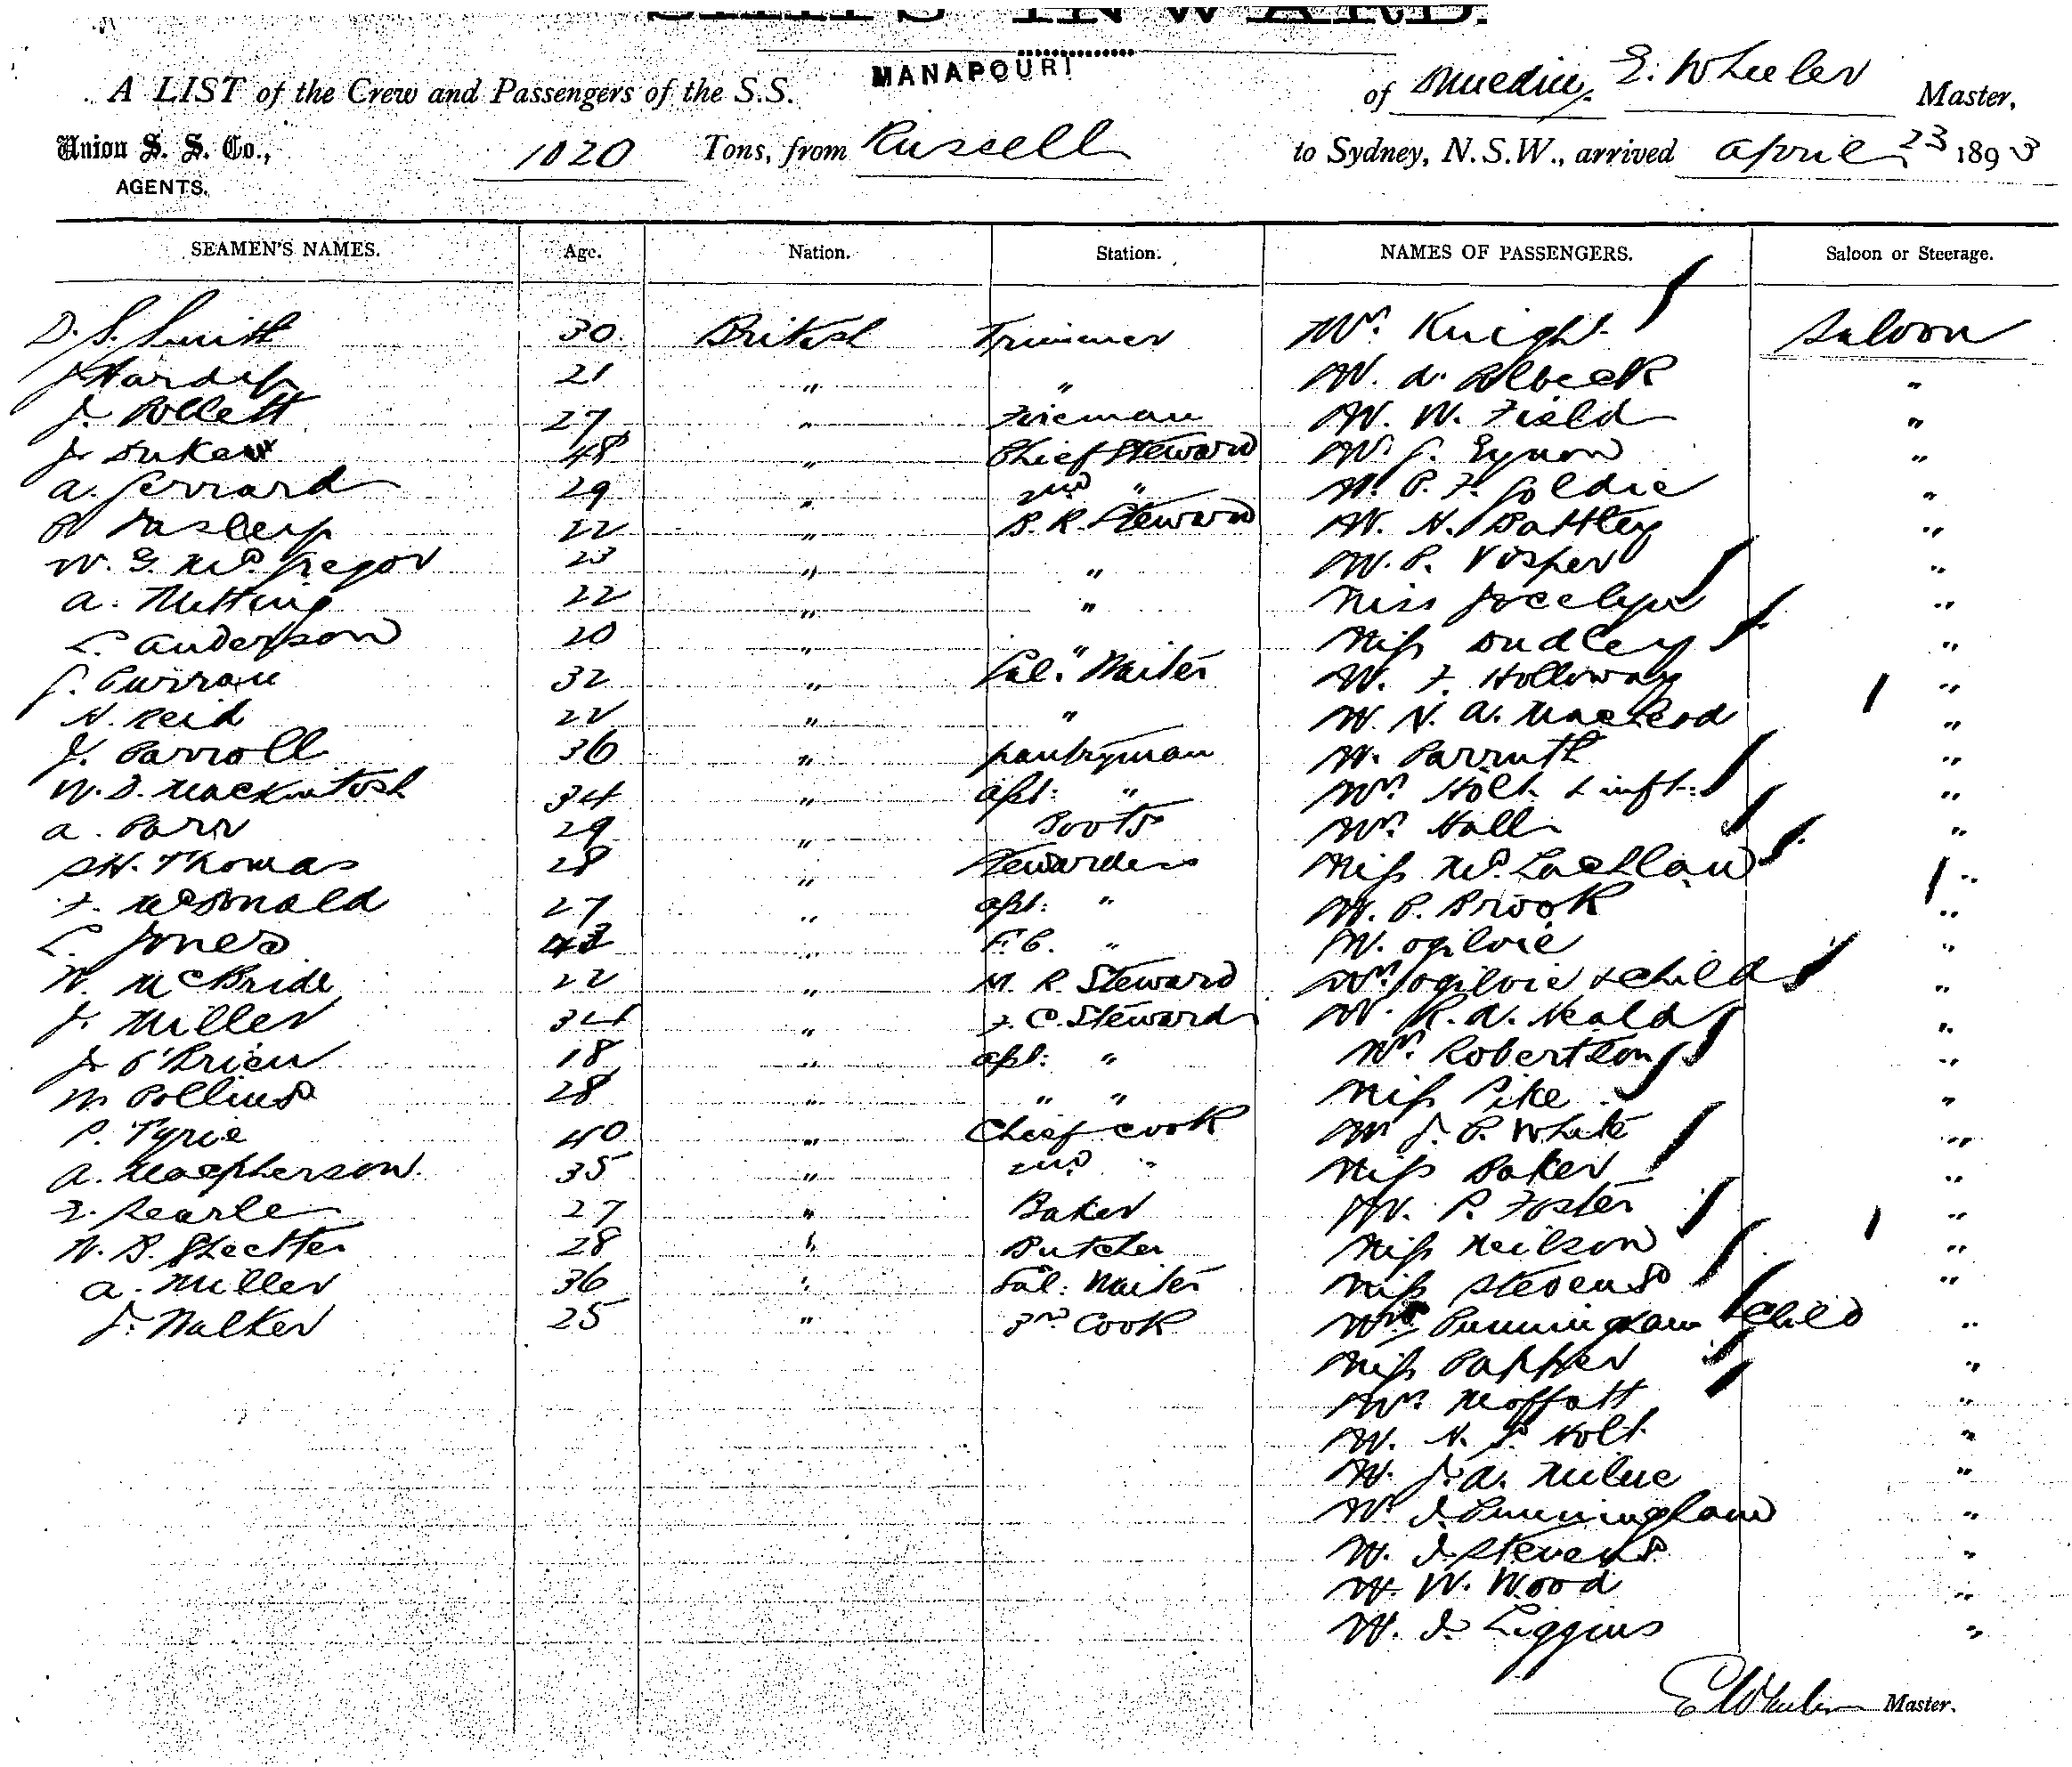 SHIPS INWARD.
A LIST of the Crew and Passengers of the S.S. MANAPOURI of Dunedin, E. Wheeler Master,
Union S. S. Co., AGENTS. 1020 Tons, from Russell to Sydney, N.S.W., arrived April 23 1893
SEAMEN'S NAMES. Age. Nation. Station. NAMES OF PASSENGERS. Saloon or Steerage.
D. S. Smith 30 British Trimmer Mrs. Knight Saloon
J Hardy 21 " " Mr. A. Colbeck "
J. Collett 27 " Fireman Mr. W. Field "
J. Duke 48 " Chief Steward Mr. J. Eynon "
A. Gerrard 29 " 2nd " Mr. C. F. Goldie "
P Tasley 22 " B. R. Steward Mr. H. Battley "
W. G. McGregor 23 " " Mr. P. Vosper "
A. Nutting 22 " " Miss Jocelyn "
L. Anderson 20 " " Miss Dudley "
J. Curran 32 " Sal. Waiter Mr. F. Holloway "
N. Reid 22 " " Mr. N. A. MacLeod "
J. Carroll 36 " Pantryman Mr. Carruth "
W. D. Mackintosh 34 " asst: " Mrs. Holt & inft: "
A. Carr 29 " Boots Mrs. Hall "
S.H. Thomas 28 " Stewardess Miss McLachlan "
F. McDonald 27 " asst: " Mr. P. Brook "
L. Jones 43 " F.C. " Mr. Ogilvie "
W. McBride 22 " M. R. Steward Mrs. Ogilvie & child "
J. Miller 34 " F. C. Steward Mr. R. A. Heald "
J. O'Brien 18 " asst: " Mrs. Robertson "
M. Collins 28 " " " Miss Pike "
P. Tyrie 40 " Chief Cook Mr J. P. White "
A. Macpherson 35 " 2nd " Miss Baker "
E. Searle 27 " Baker Mr. P. Foster "
W. B. 28 " Butcher Miss Neilson "
A. Miller 36 " Sal. Waiter Miss Stevens "
J. Walker 25 " 3rd Cook Mrs Cunningham & Child "
Miss Capper "
Mrs. Moffatt "
Mr. H. S. Holt "
Mr. J. A. Milne "
Mr J. Cunningham "
Mr. J. Stevens "
Mr. W. Wood "
Mr. J. Liggins "
E Wheeler Master.